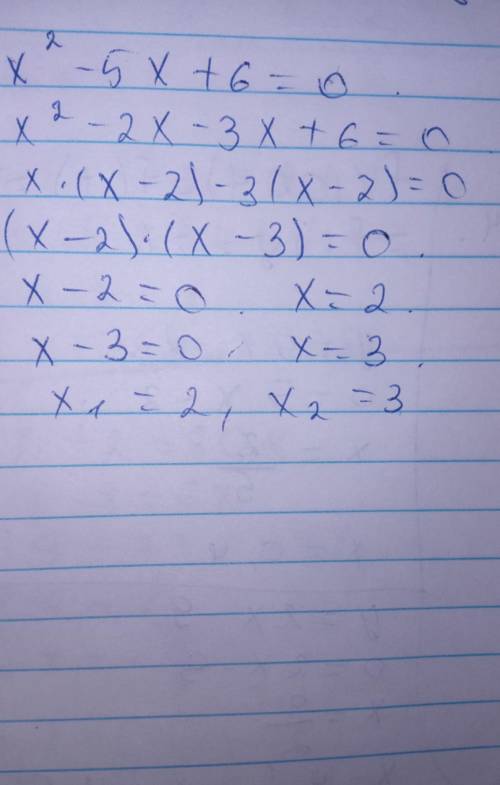 x² - 5x + 6 = 0.
x² - 2x - 3x + 6 = 0
x·(x - 2) - 3(x - 2) = 0
(x - 2)·(x - 3) = 0.
x - 2 = 0. x = 2.
x - 3 = 0, x = 3.
x₁ = 2, x₂ = 3